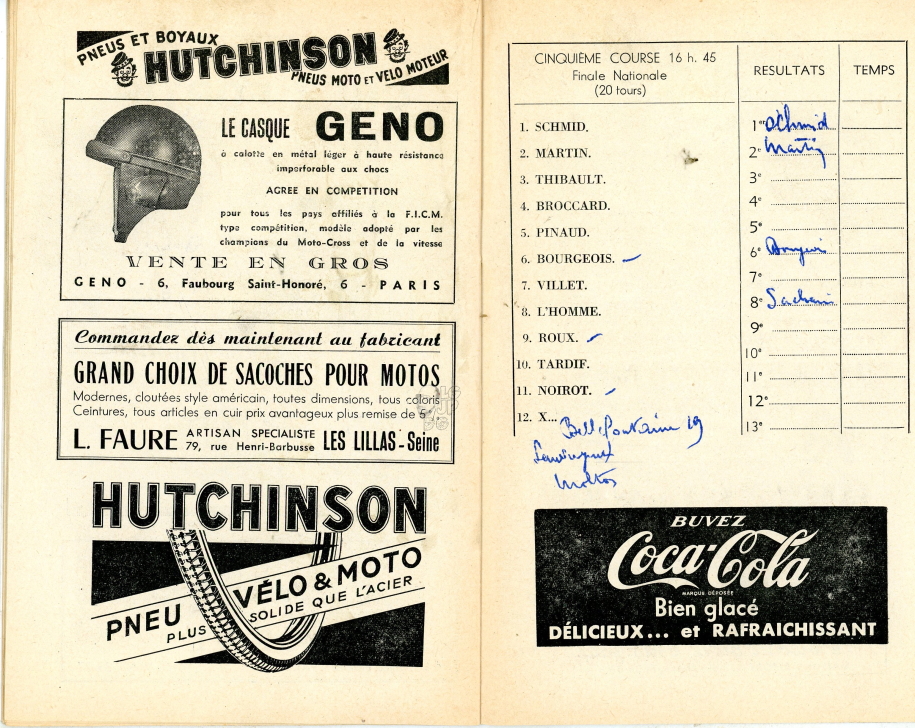 PNEUS ET BOYAUX
HUTCHINSON
PNEUS MOTO ET VELO MOTEUR
LE CASQUE GENO
à calotte en métal léger à haute résistance
imperforable aux chocs
AGREE EN COMPETITION
pour tous les pays affiliés à la F.I.C.M.
type compétition, modèle adopté par les
champions du Moto-Cross et de la vitesse
VENTE EN GROS
GENO - 6, Faubourg Saint-Honoré, 6 - PARIS
Commandez dès maintenant au fabricant
GRAND CHOIX DE SACOCHES POUR MOTOS
Modernes, cloutées style américain, toutes dimensions, tous coloris
Ceintures, tous articles en cuir prix avantageux plus remise de 5
L. FAURE ARTISAN SPECIALISTE
79, rue Henri-Barbusse LES LILLAS - Seine
HUTCHINSON
PNEU VÉLO & MOTO
PLUS SOLIDE QUE L'ACIER
CINQUIÈME COURSE 16 h. 45
Finale Nationale
(20 tours)
RESULTATS
TEMPS
1. SCHMID.
2. MARTIN.
3. THIBAULT.
4. BROCCARD.
5. PINAUD.
6. BOURGEOIS.
7. VILLET.
8. L'HOMME.
9. ROUX.
10. TARDIF.
11. NOIROT.
12. X...
1er Schmid
2e Martin
3e
4e
5e
6e
7e
8e
9e
10e
11e
12e
13e
BUVEZ
Coca-Cola
MARQUE DÉPOSÉE
Bien glacé
DÉLICIEUX... et RAFRAICHISSANT